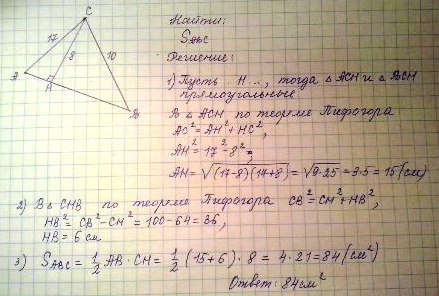 C
17
8
10
A
H
B
Найти:
S_ABC
Решение:
1) Пусть H ..., тогда △ ACH и △ BCH
прямоугольные
В △ ACH по теореме Пифогора
AC² = AH² + HC²,
AH² = 17² - 8²;
AH = √(17-8)(17+8) = √9·25 = 3·5 = 15 (см)
2) В △ CHB по теореме Пифогора CB² = CH² + HB²,
HB² = CB² - CH² = 100 - 64 = 36,
HB = 6 см
3) S_ABC = 1/2 AB · CH = 1/2 (15 + 6) · 8 = 4 · 21 = 84 (см²)
Ответ: 84 см²